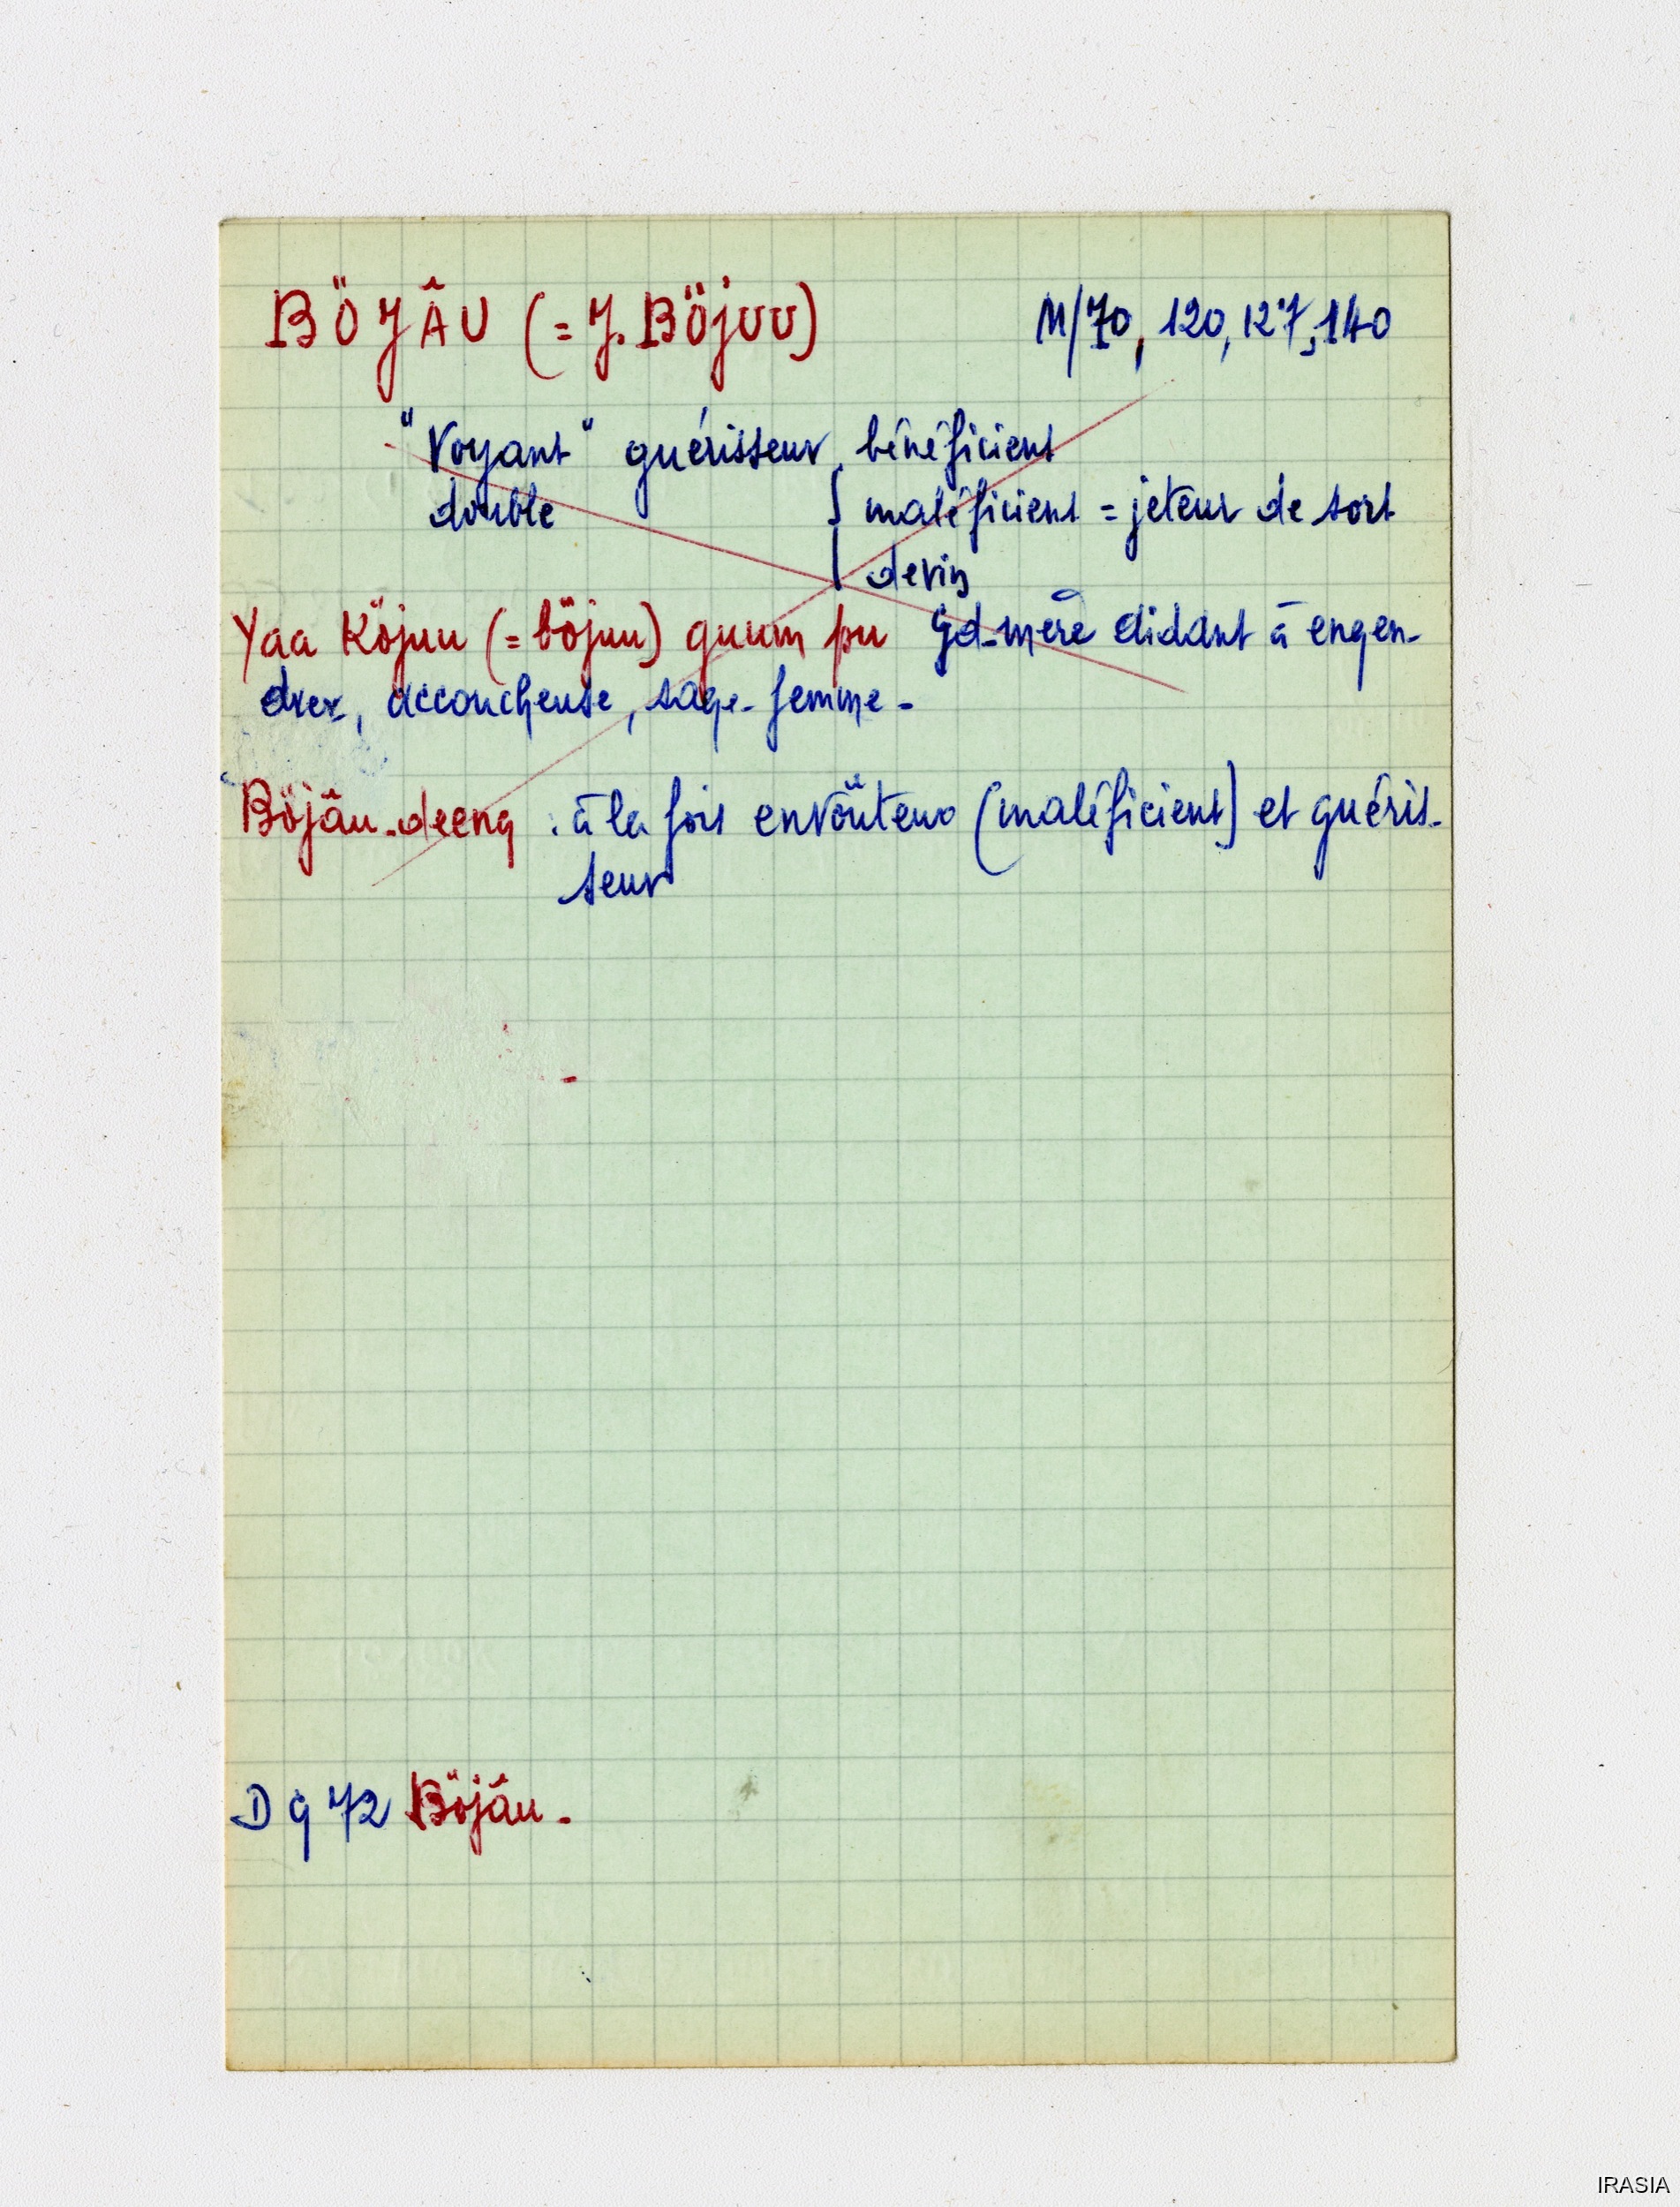 BÖJÂU (= J. BÖJUU) M/70, 120, 127, 140
"Voyant" guérisseur bénéficient
double { maléficient = jeteur de sort
devin
Yaa Köjuu (= böjuu) guum pu Gd-mère aidant à engen-
drer, accoucheuse, sage-femme -
Böjâu-deeng : à la fois envoûteur (maléficient) et guéris-
seur
D 9 72 Böjâu -
IRASIA